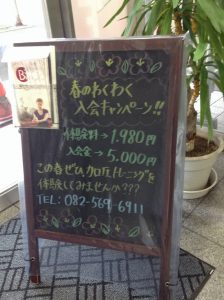 春のわくわく
入会キャンペーン!!
体験料→1,980円
入会金→5,000円
この春ぜひ加圧トレーニングを
体験してみませんか???
TEL: 082-569-6911